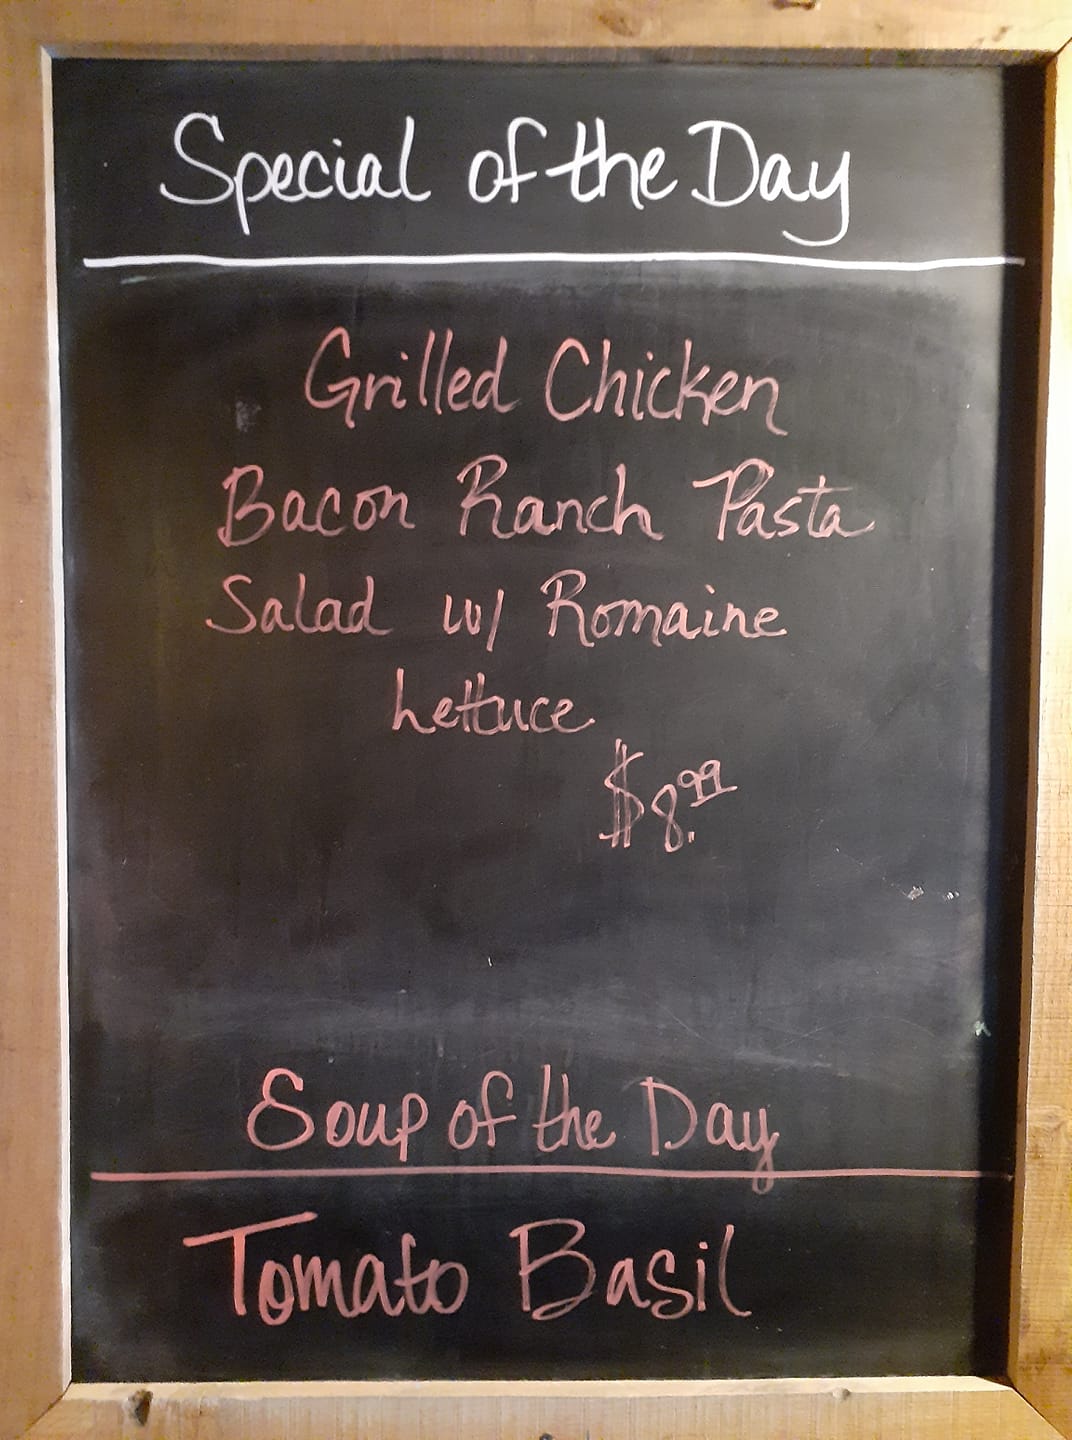 Special of the Day
Grilled Chicken
Bacon Ranch Pasta
Salad w/ Romaine
Lettuce
$8.99
Soup of the Day
Tomato Basil